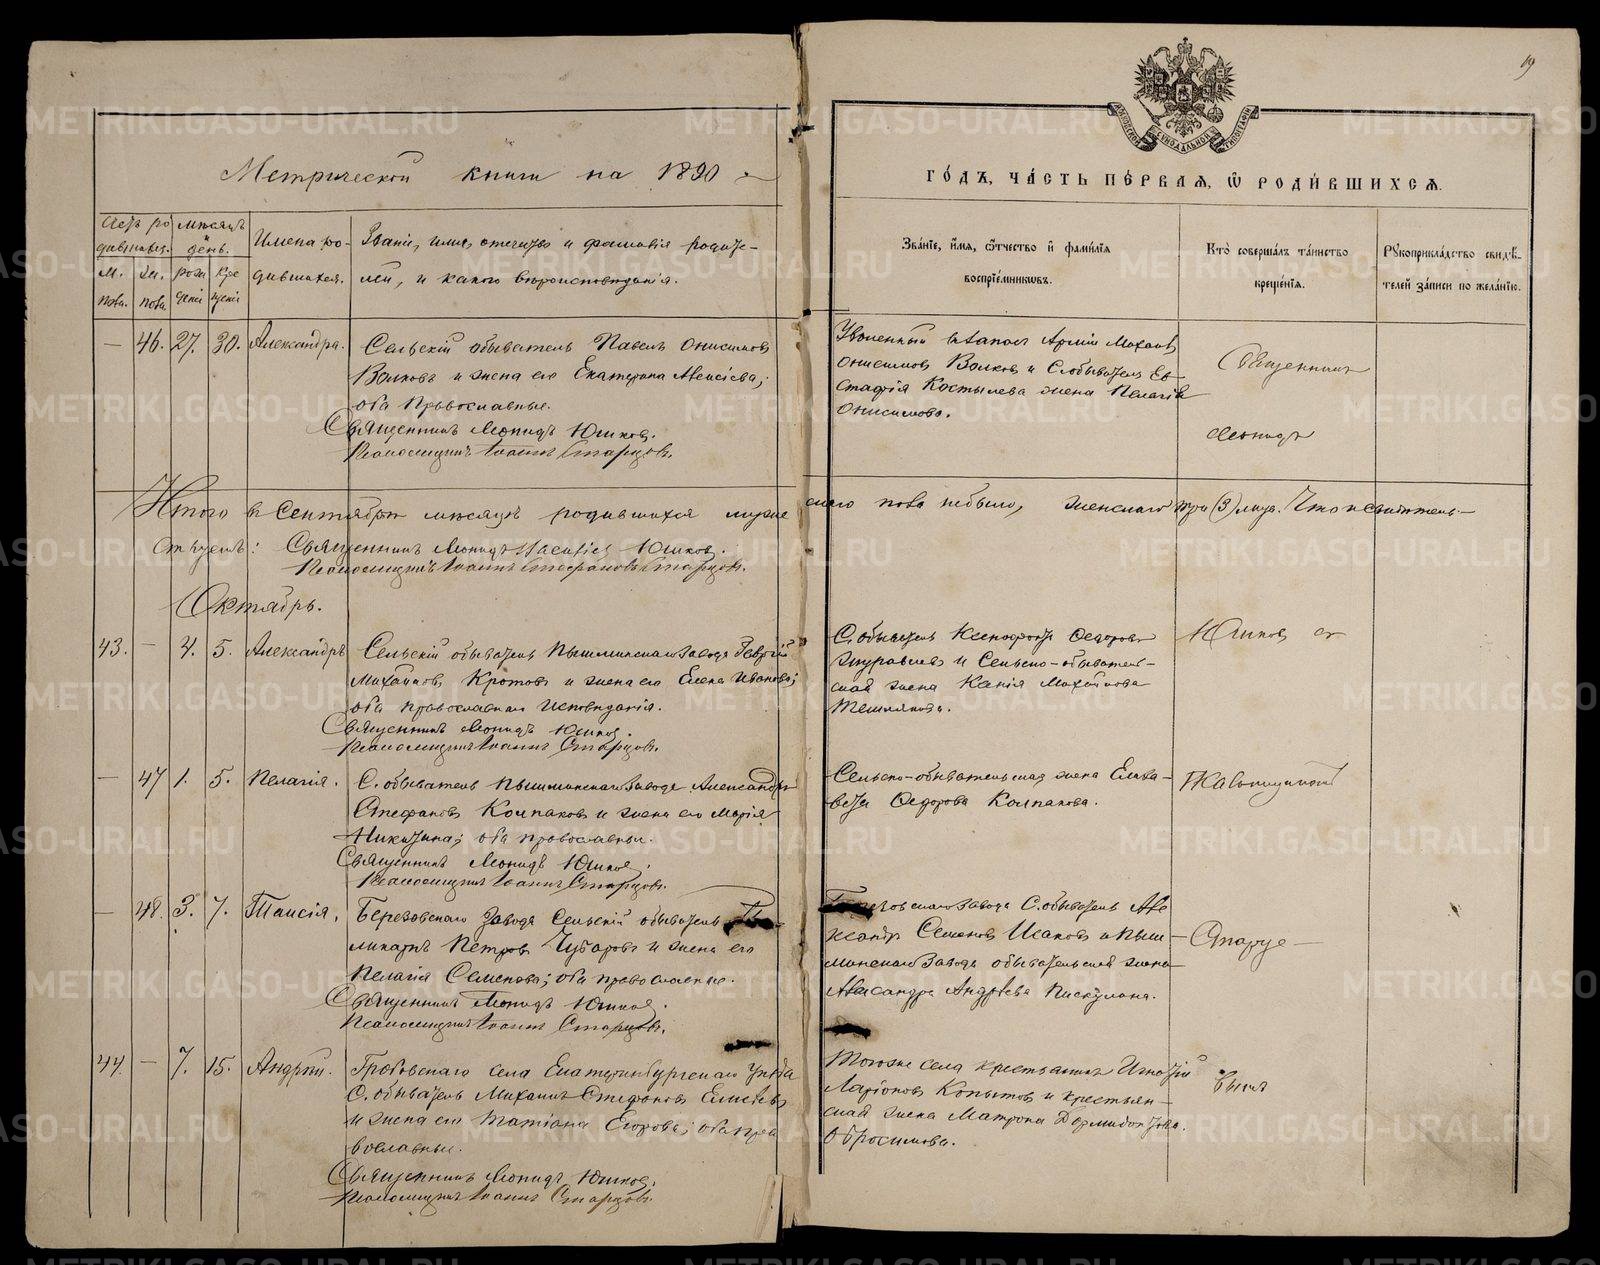 19
Метрической книги на 1890
ГОДЪ, ЧАСТЬ ПЕРВАЯ, Ѡ РОДИВШИХСЯ.
Счетъ родившихся.
Мѣсяцъ и день.
Имена родившихся.
Званіе, имя, отчество и фамилія родите-
лей, и какого вѣроисповѣданія.
М. пола.
Ж. пола.
рожденія
крещенія
Званіе, имя, ѡтчество и фамилія
воспріемниковъ.
Кто совершалъ таинство
крещенія.
Рукоприкладство свидѣ-
телей записи по желанію.
— 46. 27. 30. Александра.
Сельскій обыватель Павелъ Онисимовъ
Волковъ и жена его Екатерина Алексіева;
оба православные.
Священникъ Леонидъ Юшковъ.
Псаломщикъ Іоаннъ Старцовъ.
Уволенный въ запасъ Арміи Михаилъ
Онисимовъ Волковъ и С. обывателя Ев-
стафія Костылева жена Пелагія
Онисимова.
Священникъ
Леонидъ
Итого въ Сентябрѣ мѣсяцѣ родившихся муже скаго пола небыло, женскаго три (3) лица. Что и свидѣтель-
ствуемъ: Священникъ Леонидъ Юшковъ.
Псаломщикъ Іоаннъ Стефановъ Старцовъ.
Октябрь.
43. — 4. 5. Александръ
Сельскій обыватель Пышминскаго завода Георгій
Михайловъ Кротовъ и жена его Елена Иванова;
оба православнаго исповѣданія.
Священникъ Леонидъ Юшковъ.
Псаломщикъ Іоаннъ Старцовъ.
С. обыватель Ксенофонтъ Ѳедоровъ
Журавлевъ и Сельско-обыватель-
ская жена Ксенія Михайлова
Юшковъ съ
— 47 1. 5. Пелагія.
С. обыватель Пышминскаго завода Александръ
Стефановъ Колпаковъ и жена его Марія
Никитина; оба православные.
Священникъ Леонидъ Юшковъ.
Псаломщикъ Іоаннъ Старцовъ.
Сельско-обывательская жена Елиза-
вета Ѳедорова Колпакова.
Псаломщикомъ
— 48. 3. 7. Таисія.
Березовскаго завода Сельскій обыватель По-
ликарпъ Петровъ Чубаровъ и жена его
Пелагія Семенова; оба православные.
Священникъ Леонидъ Юшковъ.
Псаломщикъ Іоаннъ Старцовъ.
Березовскаго завода С. обыватель Але
ксандръ Семеновъ Исаковъ и Пыш-
минскаго завода обывательская жена
Александра Андреева Пискулина.
Старце-
44. — 7. 15. Андрей.
Гробовскаго села Екатеринбургскаго уѣзда
С. обыватель Михаилъ Стефановъ
и жена его Татіана Егорова; оба пра
вославные.
Священникъ Леонидъ Юшковъ.
Псаломщикъ Іоаннъ Старцовъ.
Тогоже села крестьянинъ Игнатій
Ларіоновъ Копытовъ и крестьян-
ская жена Матрона Дормидонтова
Обросимова.
вымъ